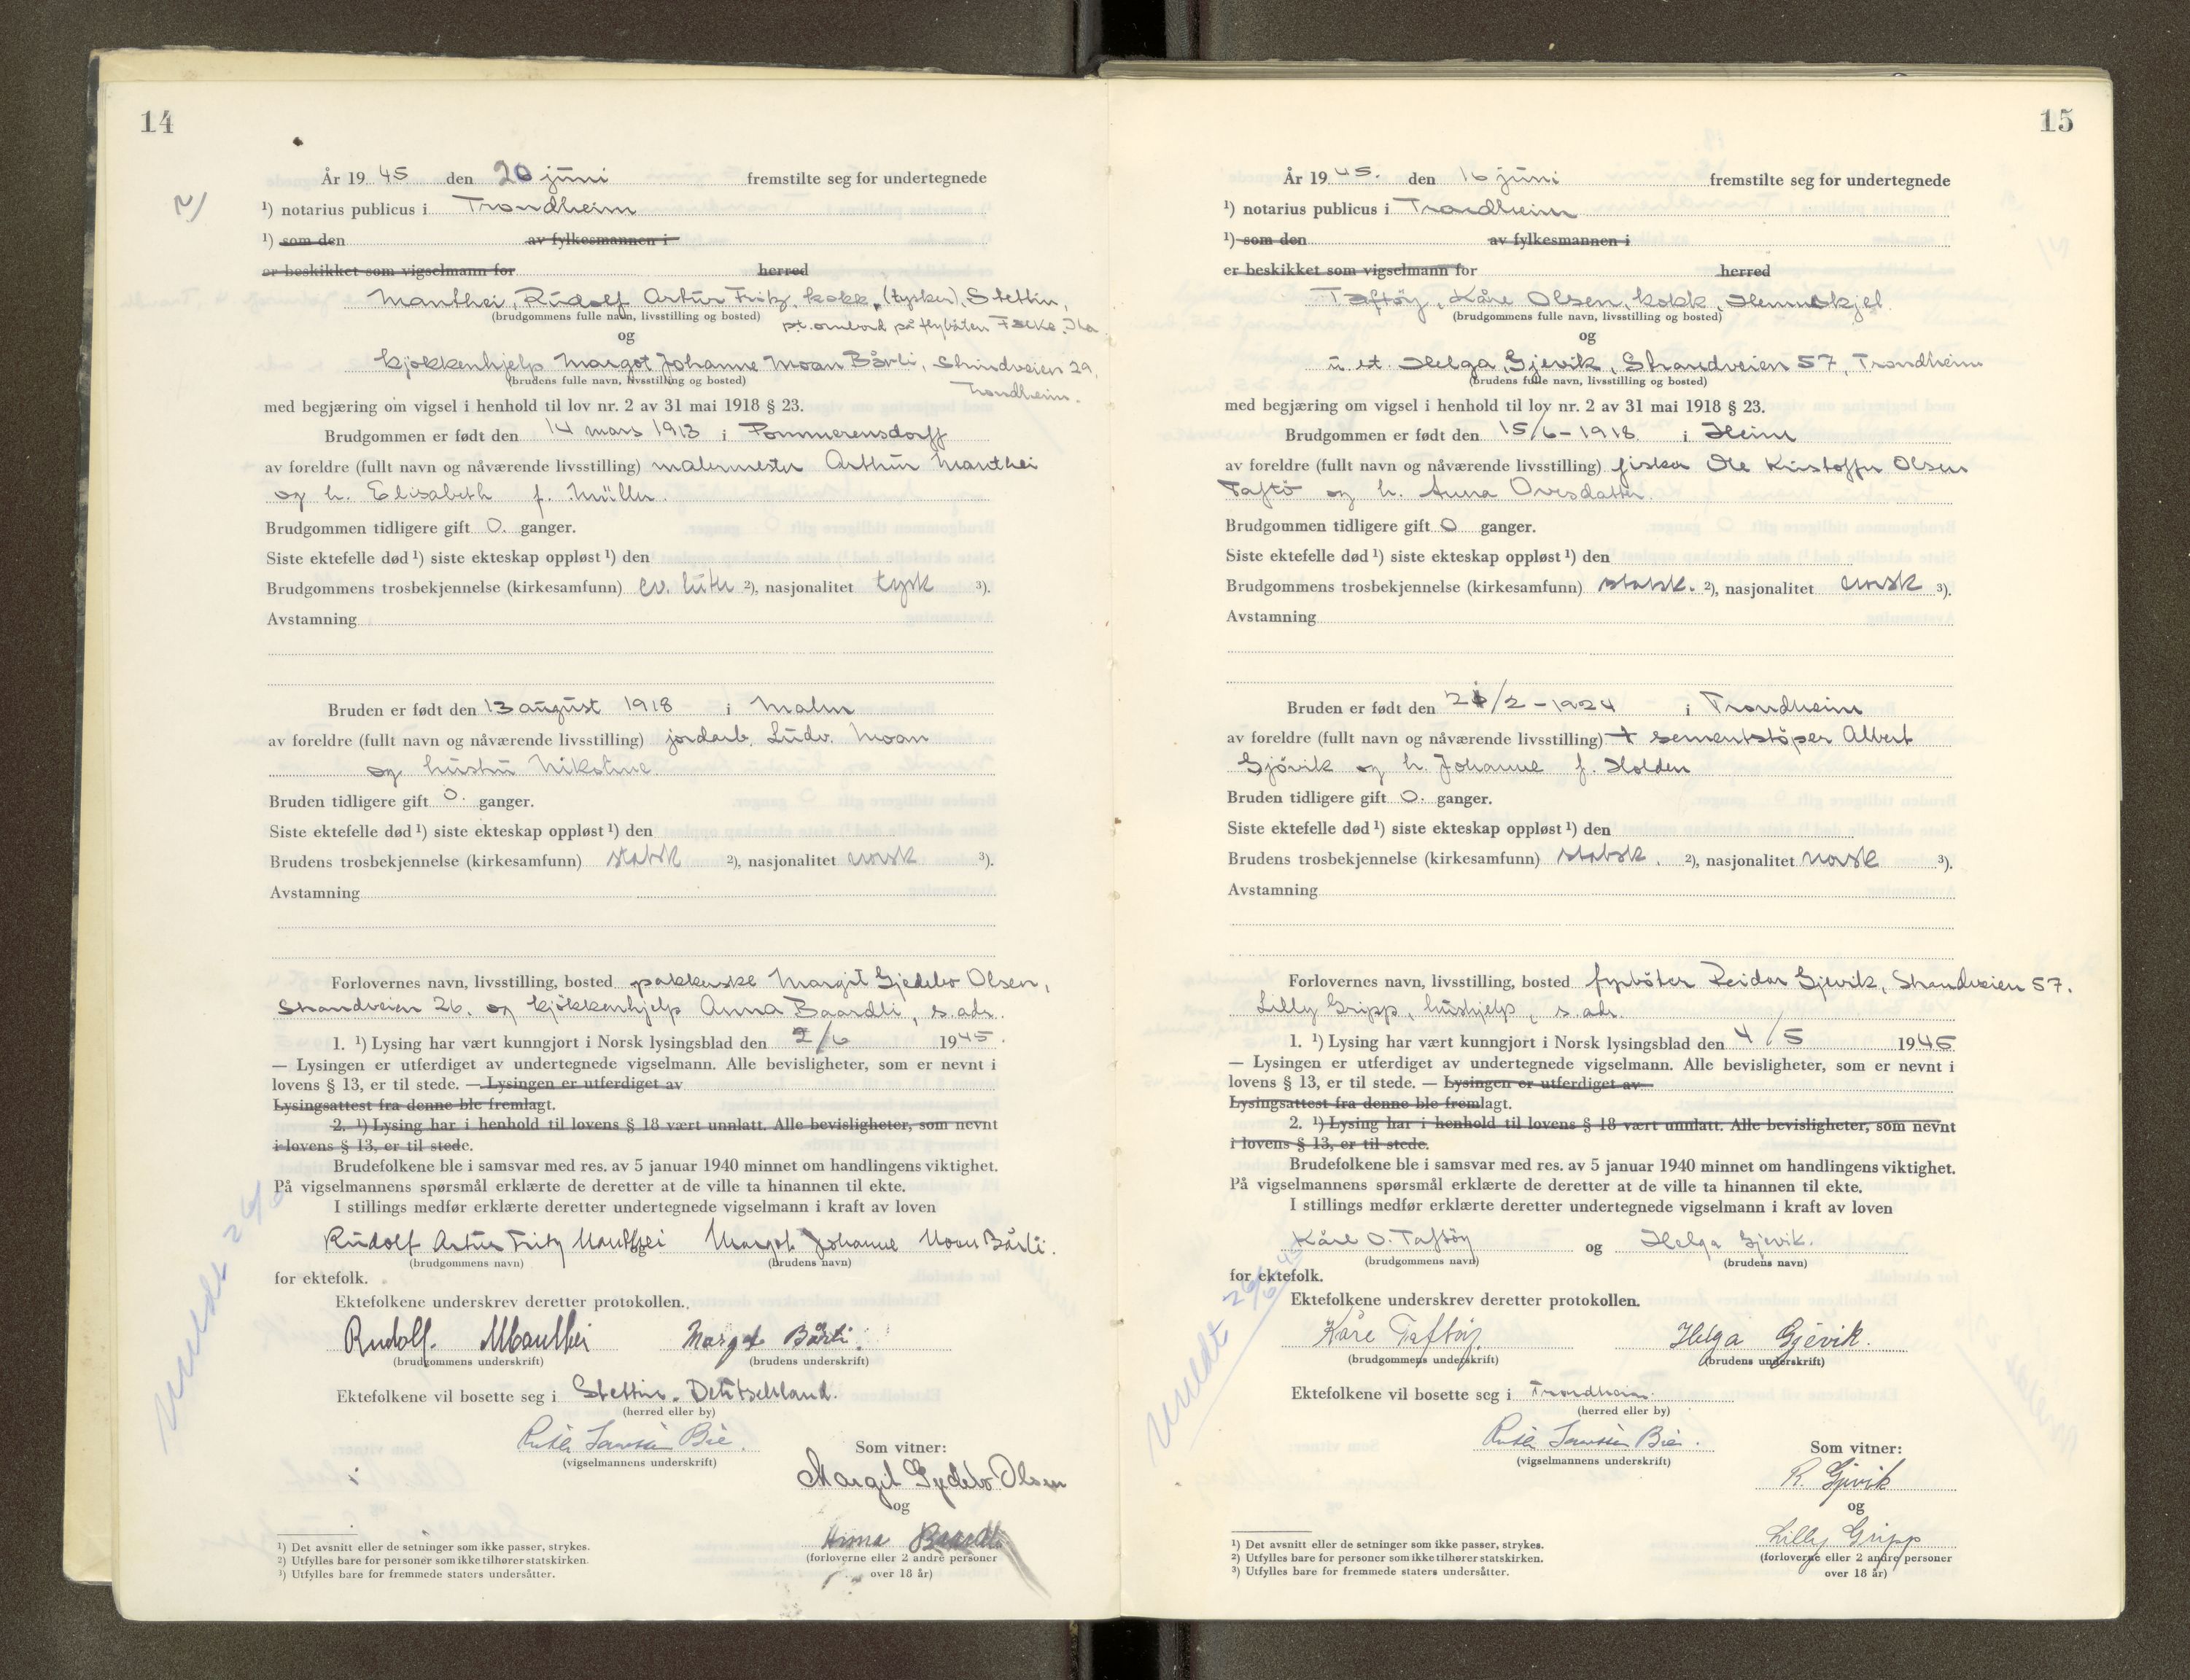 14
År 1945 den 20 juni fremstilte seg for undertegnede
2)
¹) notarius publicus i Trondheim
¹) som den av fylkesmannen i
er beskikket som vigselmann for herred
Manthei, Rudolf Artur Fritz, kokk, (tysker), Stettin,
(brudgommens fulle navn, livsstilling og bosted) pt. ombord på flybåten Falke, Ila
og
kjøkkenhjelp Margot Johanne Moan Bårli, Strindveien 29,
(brudens fulle navn, livsstilling og bosted) Trondheim.
med begjæring om vigsel i henhold til lov nr. 2 av 31 mai 1918 § 23.
Brudgommen er født den 14 mars 1913 i Pommerensdorff
av foreldre (fullt navn og nåværende livsstilling) malermester Arthur Manthei
og h. Elisabeth f. Müller.
Brudgommen tidligere gift 0. ganger.
Siste ektefelle død ¹) siste ekteskap oppløst ¹) den
Brudgommens trosbekjennelse (kirkesamfunn) ev. luth ²), nasjonalitet tysk ³).
Avstamning
Bruden er født den 13 august 1918 i Malm
av foreldre (fullt navn og nåværende livsstilling) jordarb. Ludv. Moan
og hustru Nikoline
Bruden tidligere gift 0. ganger.
Siste ektefelle død ¹) siste ekteskap oppløst ¹) den
Brudens trosbekjennelse (kirkesamfunn) statsk ²), nasjonalitet norsk ³).
Avstamning
Forlovernes navn, livsstilling, bosted pakkerske Margit Gjedebo Olsen,
Strandveien 26. og kjøkkenhjelp Anna Baardli, s. adr.
1. ¹) Lysing har vært kunngjort i Norsk lysingsblad den 2/6 1945.
— Lysingen er utferdiget av undertegnede vigselmann. Alle bevisligheter, som er nevnt i
lovens § 13, er til stede. — Lysingen er utferdiget av
Lysingsattest fra denne ble fremlagt.
2. ¹) Lysing har i henhold til lovens § 18 vært unnlatt. Alle bevisligheter, som nevnt
i lovens § 13, er til stede.
Brudefolkene ble i samsvar med res. av 5 januar 1940 minnet om handlingens viktighet.
På vigselmannens spørsmål erklærte de deretter at de ville ta hinannen til ekte.
I stillings medfør erklærte deretter undertegnede vigselmann i kraft av loven
Rudolf Artur Fritz Manthei og Margot Johanne Moan Bårli.
(brudgommens navn) (brudens navn)
for ektefolk.
Ektefolkene underskrev deretter protokollen.
Rudolf. Manthei Margot Bårli.
(brudgommens underskrift) (brudens underskrift)
Ektefolkene vil bosette seg i Stettin. Deutschland.
(herred eller by)
(vigselmannens underskrift) Som vitner:
Margit Gjedebo Olsen
og
Anna Baardli
(forloverne eller 2 andre personer
over 18 år)
¹) Det avsnitt eller de setninger som ikke passer, strykes.
²) Utfylles bare for personer som ikke tilhører statskirken.
³) Utfylles bare for fremmede staters undersåtter.
Meldt 26/6
15
År 1945. den 16 juni fremstilte seg for undertegnede
¹) notarius publicus i Trondheim
¹) som den av fylkesmannen i
er beskikket som vigselmann for herred
Taftöy, Kåre Olsen, kokk, Hemnskjel
(brudgommens fulle navn, livsstilling og bosted)
og
u. st. Helga Gjevik, Strandveien 57, Trondheim
(brudens fulle navn, livsstilling og bosted)
med begjæring om vigsel i henhold til lov nr. 2 av 31 mai 1918 § 23.
Brudgommen er født den 15/6-1918 i Heim
av foreldre (fullt navn og nåværende livsstilling) fisker Ole Kristoffer Olsen
Taftö og h. Anna Ovesdatter.
Brudgommen tidligere gift 0 ganger.
Siste ektefelle død ¹) siste ekteskap oppløst ¹) den
Brudgommens trosbekjennelse (kirkesamfunn) statsk. ²), nasjonalitet norsk ³).
Avstamning
Bruden er født den /2-1924 i Trondheim
av foreldre (fullt navn og nåværende livsstilling) + sementstöper Albert
Gjövik og h. Johanne f. Holden
Bruden tidligere gift 0. ganger.
Siste ektefelle død ¹) siste ekteskap oppløst ¹) den
Brudens trosbekjennelse (kirkesamfunn) statsk. ²), nasjonalitet norsk ³).
Avstamning
Forlovernes navn, livsstilling, bosted fyrböter Reidar Gjevik, Strandveien 57.
Lilly Gripp, hushjelp, s. adr.
1. ¹) Lysing har vært kunngjort i Norsk lysingsblad den 4/5 1945
— Lysingen er utferdiget av undertegnede vigselmann. Alle bevisligheter, som er nevnt i
lovens § 13, er til stede. — Lysingen er utferdiget av
Lysingsattest fra denne ble fremlagt.
2. ¹) Lysing har i henhold til lovens § 18 vært unnlatt. Alle bevisligheter, som nevnt
i lovens § 13, er til stede.
Brudefolkene ble i samsvar med res. av 5 januar 1940 minnet om handlingens viktighet.
På vigselmannens spørsmål erklærte de deretter at de ville ta hinannen til ekte.
I stillings medfør erklærte deretter undertegnede vigselmann i kraft av loven
Kåre O. Taftöy og Helga Gjevik.
(brudgommens navn) (brudens navn)
for ektefolk.
Ektefolkene underskrev deretter protokollen.
Kåre Taftöy. Helga Gjevik.
(brudgommens underskrift) (brudens underskrift)
Ektefolkene vil bosette seg i Trondheim.
(herred eller by)
(vigselmannens underskrift) Som vitner:
R. Gjevik
og
Lilly Gripp
(forloverne eller 2 andre personer
over 18 år)
¹) Det avsnitt eller de setninger som ikke passer, strykes.
²) Utfylles bare for personer som ikke tilhører statskirken.
³) Utfylles bare for fremmede staters undersåtter.
Meldt 26/6 45